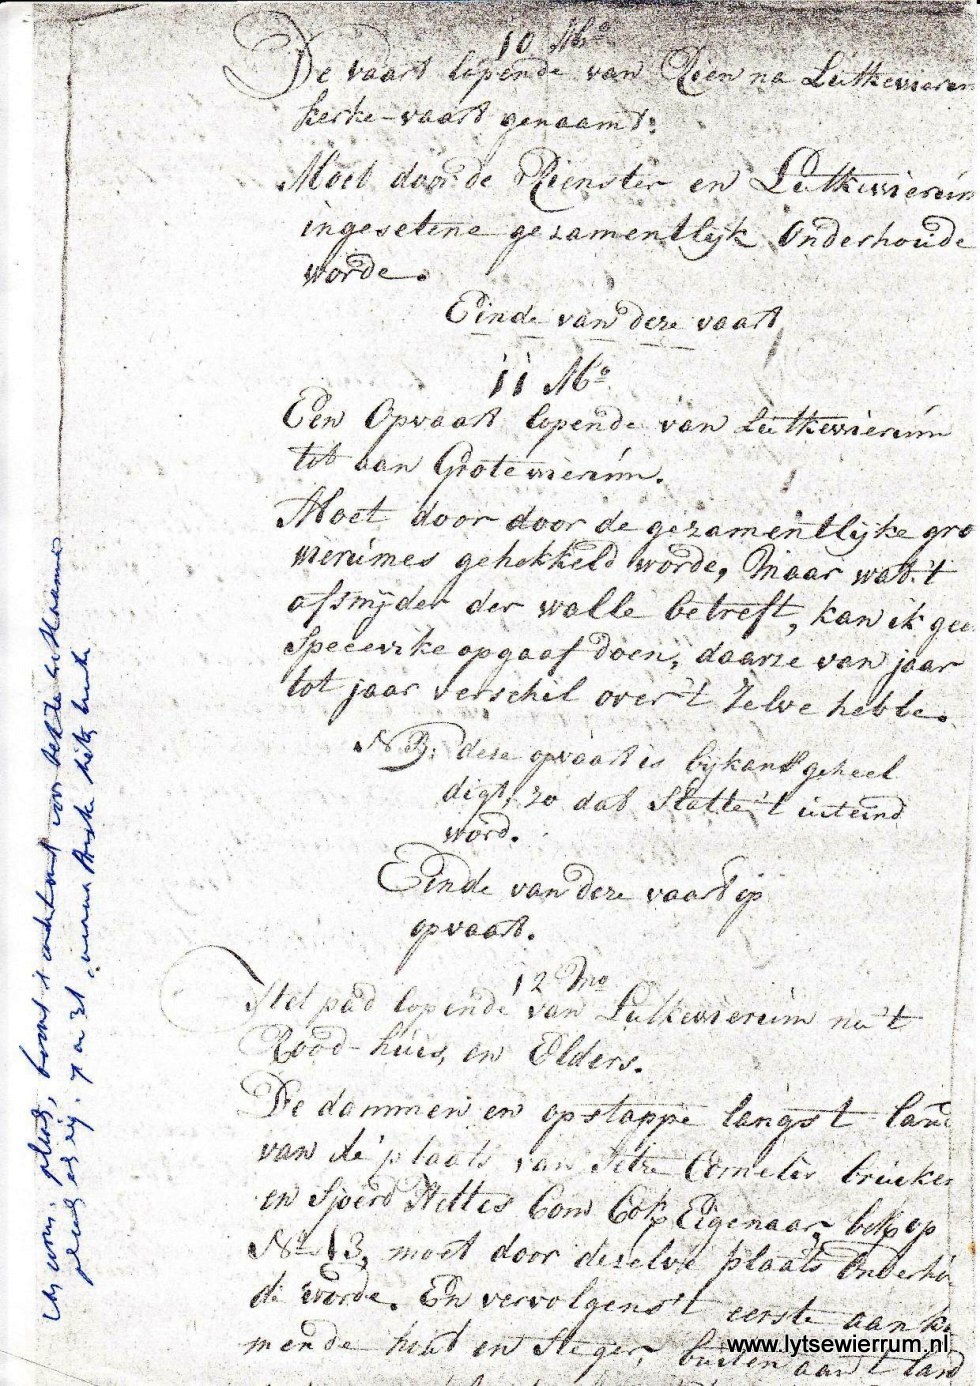 10 Mo
De vaart lopende van Rien na Lutkewierum
kerke-vaart genaamt:
Moet door de Rienster en Lutkewierum
ingesetene gezamentlijk Onderhoude
worde.
Einde van deze vaart
11 Mo
Een Opvaart lopende van Lutkewierum
tot aan Grotewierum.
Moet door door de gezamentlijke gro
wierumes gehekkeld worde, Maar wat 't
afsnijder der walle betreft, kan ik gee
opgaaf doen, daar ze van jaar
tot jaar verschil over 't zelve hebbe.
NB: dese opvaart is bijkans geheel
digt, zo dat Slatte 't uiteind
word.
Einde van deze vaart op
opvaart.
12 Mo
Het pad lopende van Lutkewierum na 't
Rood-huis, en Elders.
De dammen en opstappe langs t land
van de plaats van Cornelis bruiker
en Sjoerd Eigenaar, op
No 13, moet door deselve plaats Onderhou
de worde. En vervolgens 't eerste aanko
mende hout en Steger, buiten aan 't land
www.lytsewierrum.nl